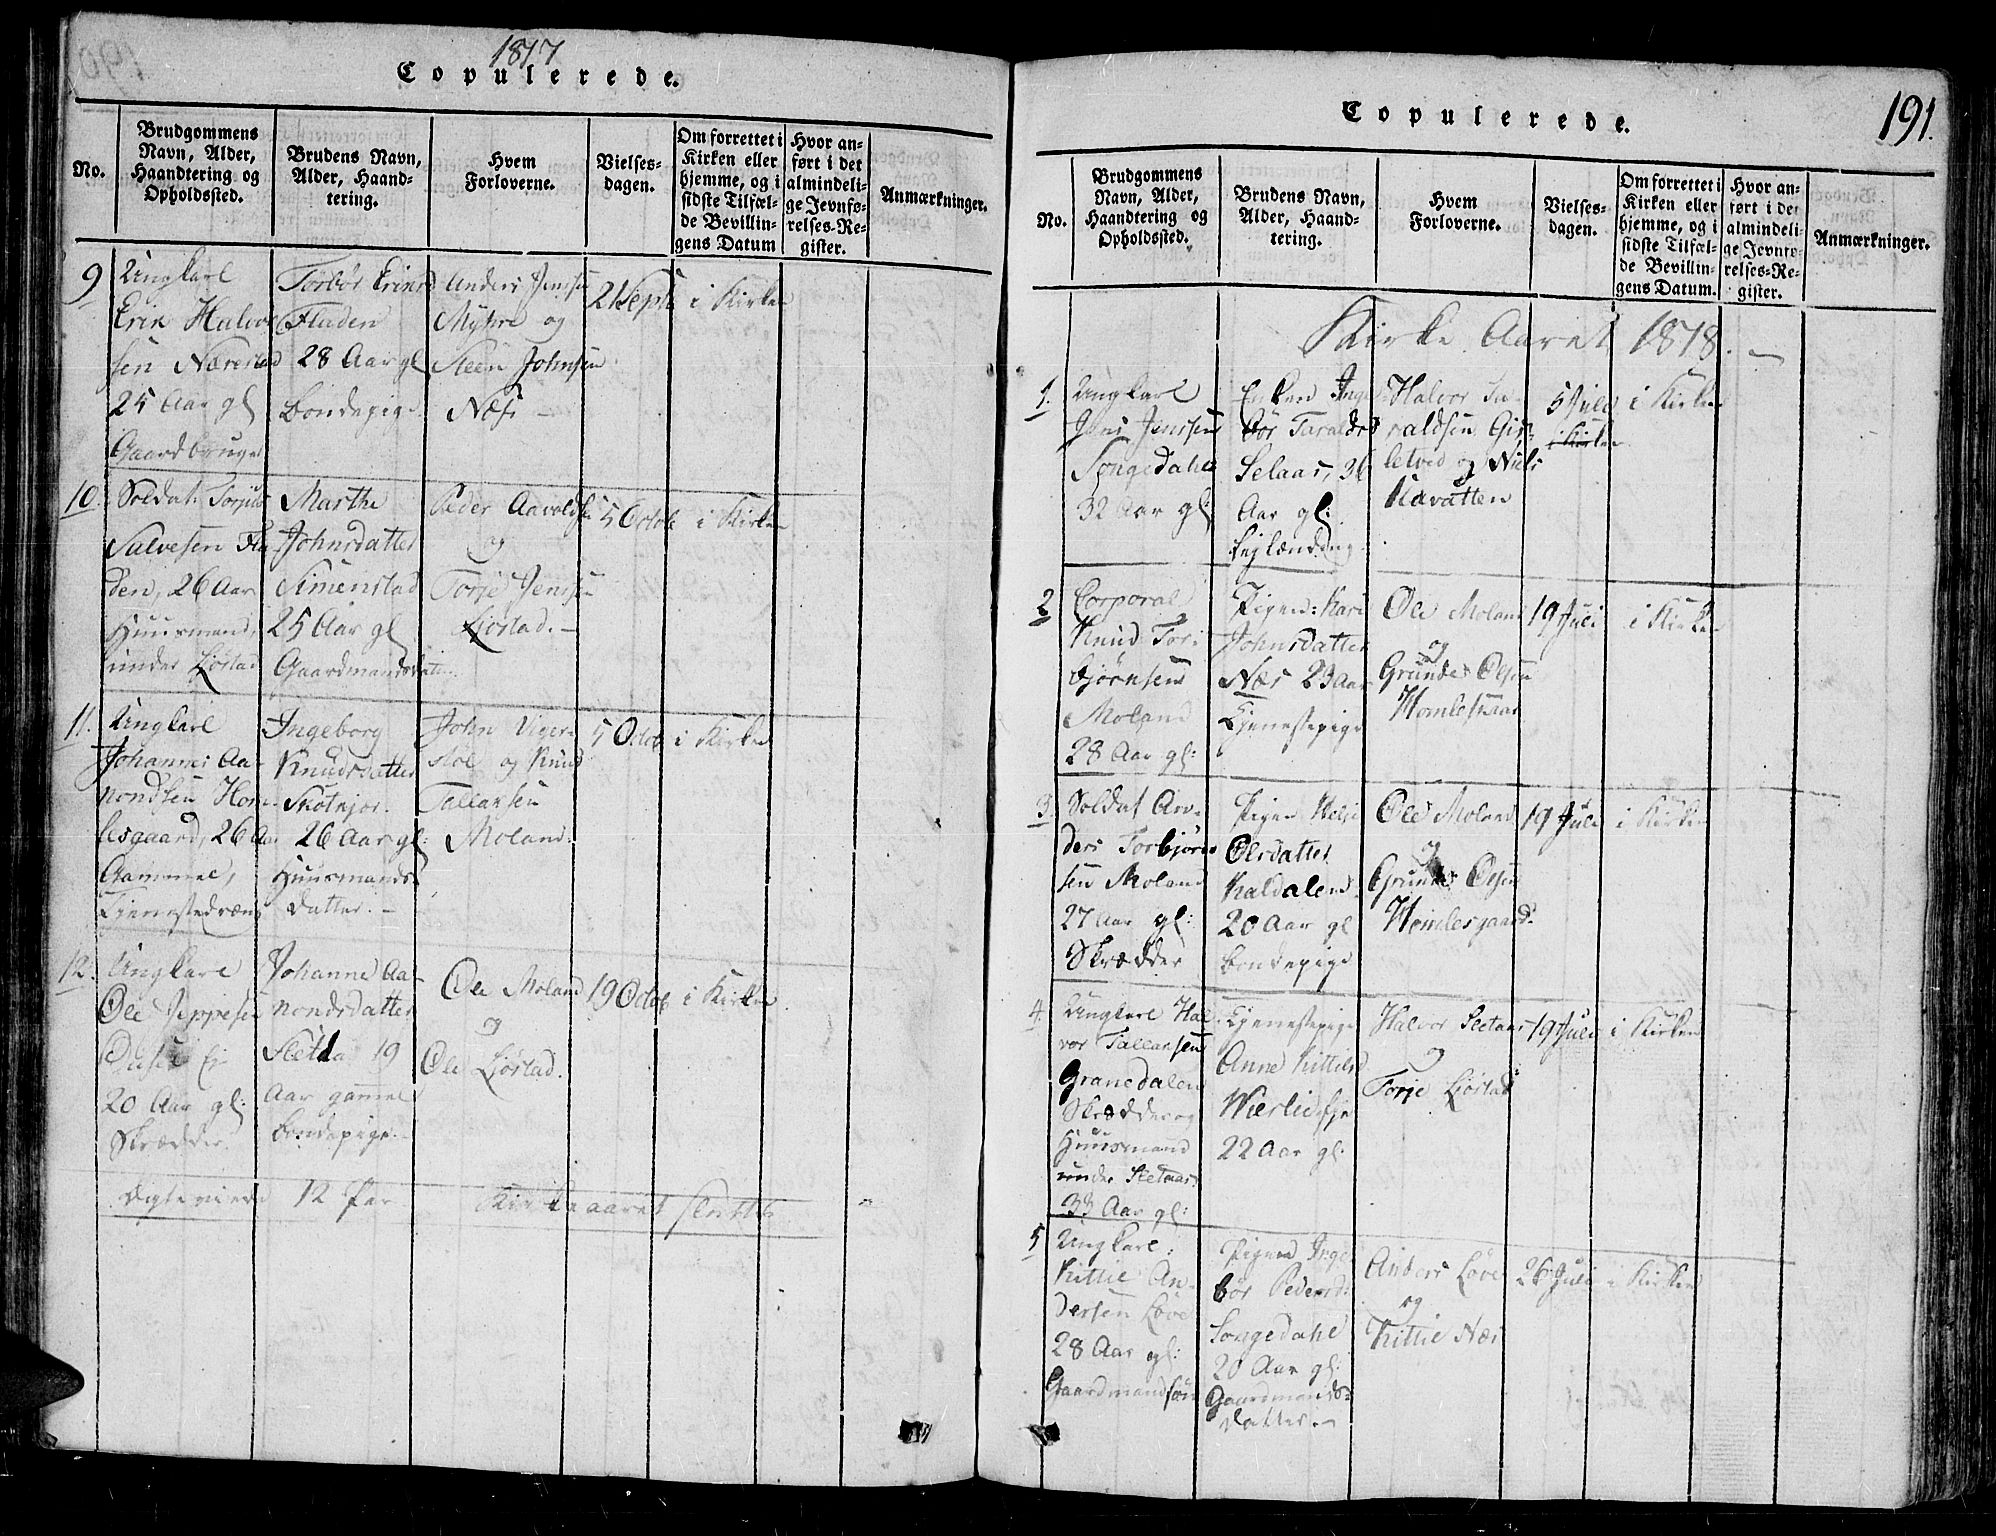 1817
Copulerede.
No.
Brudgommens
Navn, Alder,
Haandtering og
Opholdssted.
Brudens Navn,
Alder, Haand-
tering.
Hvem
Forloverne.
Vielses-
dagen.
Om forrettet i
Kirken eller
hjemme, og i
sidste Tilfæl-
de Bevillin-
gens Datum
Hvor an-
ført i det
almindeli-
ge Jevnfø-
relses-Re-
gister.
Anmærkninger.
9
Ungkarl
Erik Halvor
sen Nærestad
25 Aar gl
Gaardbruger
Torbør Erinsd
Fladen
28 Aar gl
bondepige
Anders Jenssen
Myhre og
Steen Johnsen
Næss
21 Septb
i Kirken
10.
Soldat Torjus
Salvesen Fla
den, 26 Aar
Huusmand,
under Ljøstad
Marthe
Johnsdatter
Simenstad
25 Aar gl
Gaardmandsdatt
Peder Aavoldsen
og
Torje Jenssen
Ljøstad. -
5 Octob
i Kirken
11.
Ungkarl
Johannes Aa-
nondsen Hom-
lesgaard, 26 Aar
Gammel,
Tjenestedreng
Ingeborg
Knudsdatter
Skotkjær.
26 Aar gl:
Huusmands
datter. -
John Vigere
støl og Knud
Tallaksen
Moland.
5 Octob
i Kirken
12.
Ungkarl
Ole Jeppesen
20 Aar gl:
Skrædder.
Johanne Aa-
nondsdatter
Sletta 19
Aar gammel
bondepige. -
Ole Moland
og
Ole Ljøstad.
19 Octob
i Kirken
Ægteviede 12 Par
Kirkeaaret sluttet
191.
Copulerede.
No.
Brudgommens
Navn, Alder,
Haandtering og
Opholdssted.
Brudens Navn,
Alder, Haand-
tering.
Hvem
Forloverne.
Vielses-
dagen.
Om forrettet i
Kirken eller
hjemme, og i
sidste Tilfæl-
de Bevillin-
gens Datum.
Hvor an-
ført i det
almindeli-
ge Jevnfø-
relses-Re-
gister.
Anmærkninger.
Kirke Aaret 1818. -
1.
Ungkarl
Jens Jenssen
Songedahl
32 Aar gl:
Enken Inge
bør Taraldsd
Selaas, 36
Aar gl:
Halvor Ta-
raldsen Gis-
letved og Niels
Kavatten
5 Juli
i Kirken
2
Corporal
Knud Tor
bjørnsen
Moland
28 Aar gl:
Pigen: Kari
Johnsdatter
Næs 23 Aar
Tjenestepige
Ole Moland
og
Grunde Olsen
Homlesgaar
19 Juli
i Kirken
3.
Soldat An-
ders Torbjørn
sen Moland
27 Aar gl:
Skrædder
Pigen Helje
Olsdatter
Kaldalen
20 Aar gl
bondepige
Ole Moland
og
Grunde Olsen
Homlesgaard.
19 Juli
i Kirken
4.
Ungkarl Hal
vor Tallaksen
Granedalen
Skrædder og
Huusmand
under Sletaas
33 Aar gl:
Tjenestepige
Anne Kittilsd
22 Aar gl.
Halvor Sletaas
og
Torje Ljøstad
19 Juli
i Kirken
5
Ungkarl:
Kittil An-
dersen Løve
28 Aar gl:
Gaardmandssøn
Pigen Inge
bør Pedersd:
Songedahl
20 Aar gl:
Gaardmands-
datter. -
Anders Løve
og
Kittil Næs
26 Juli
i Kirken